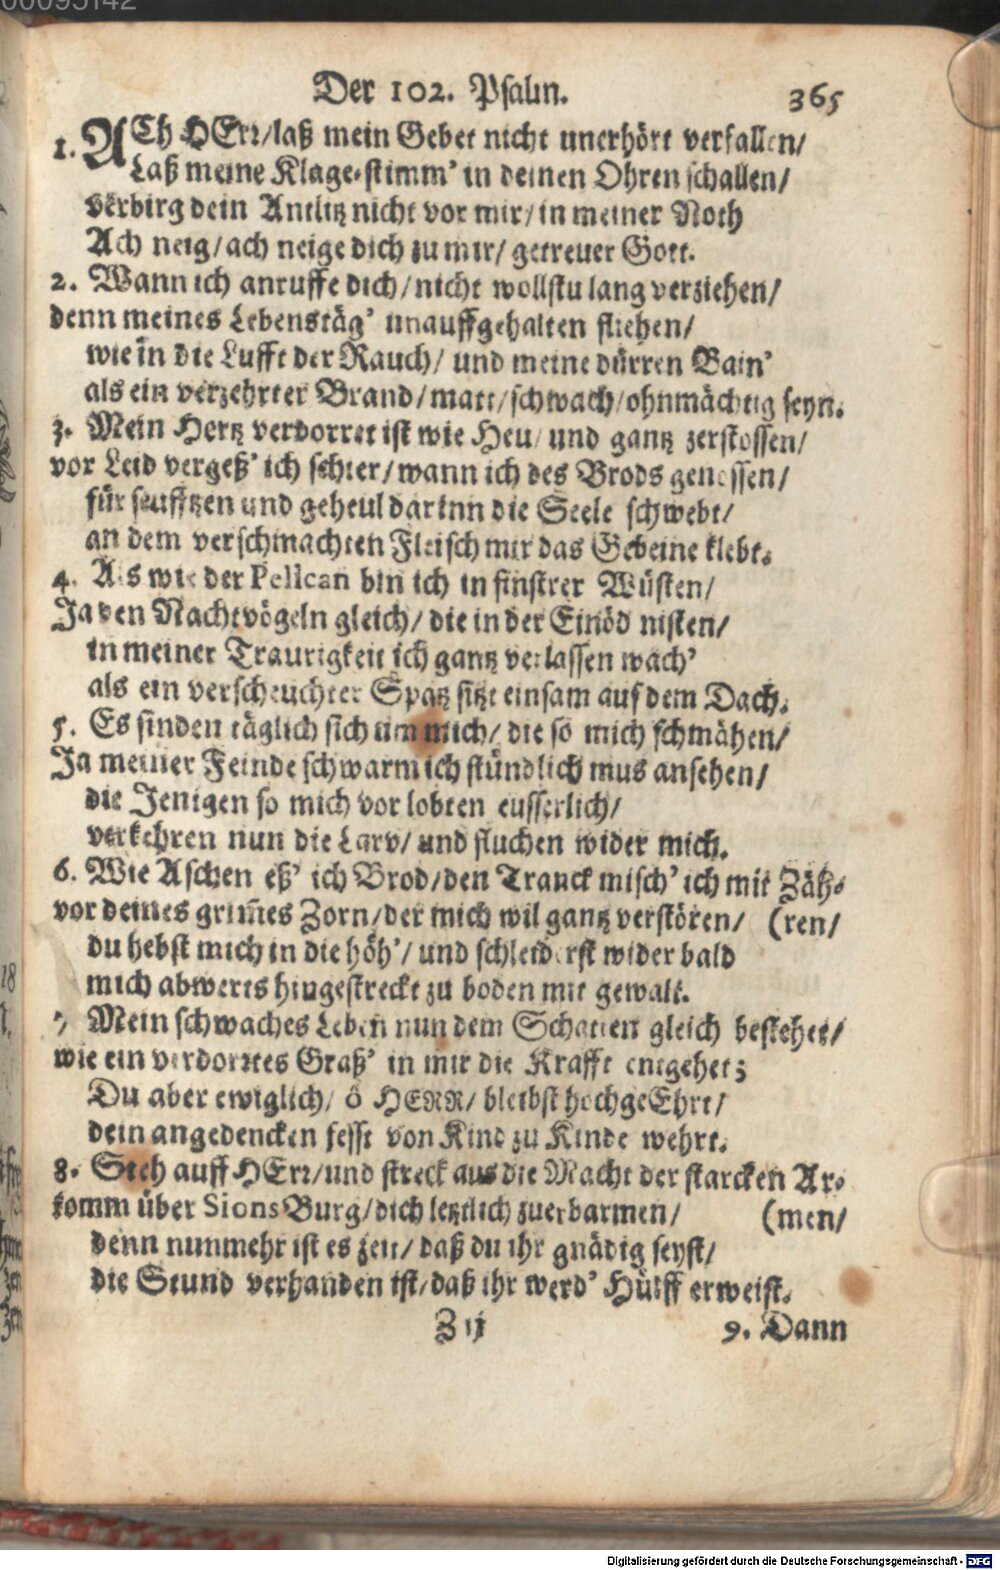 00095142
Der 102. Psalm. 365
1. ACh HErr/laß mein Gebet nicht unerhört verfallen/
Laß meine Klage-stimm' in deinen Ohren schallen/
verbirg dein Antlitz nicht vor mir/in meiner Noth
Ach neig/ach neige dich zu mir/ getreuer Gott.
2. Wann ich anruffe dich/nicht wollstu lang verziehen/
denn meines Lebenstäg' unauffgehalten fliehen/
wie in die Lufft der Rauch/ und meine dürren Bain'
als ein verzehrter Brand/matt/schwach/ohnmächtig seyn.
3. Mein Hertz verdorret ist wie Heu/ und gantz zerstossen/
vor Leid vergeß' ich sehier/wann ich des Brods genossen/
für seufftzen und geheul darinn die Seele schwebt/
an dem verschmachten Fleisch mir das Gebeine klebt.
4. Als wie der Pelican bin ich in finstrer Wüsten/
Ja den Nachtvögeln gleich/ die in der Einöd nisten/
in meiner Traurigkeit ich gantz verlassen wach'
als ein verscheuchter Spatz sitzt einsam auf dem Dach.
5. Es finden täglich sich um mich/ die so mich schmähen/
Ja meiner Feinde schwarm ich stündlich mus ansehen/
die Jenigen so mich vor lobten eusserlich/
verkehren nun die Larv/ und fluchen wider mich.
6. Wie Aschen eß' ich Brod/den Tranck misch' ich mit Zäh-
vor deines grim̄es Zorn/der mich wil gantz verstören/ (ren/
du hebst mich in die höh'/ und schleiderst wider bald
mich abwerts hingestreckt zu boden mit gewalt.
7 Mein schwaches Leben nun dem Schatten gleich bestehet/
wie ein verdorrtes Graß' in mir die Krafft entgehet;
Du aber ewiglich/ ô HERR/ bleibst hochgeEhrt/
dein angedencken fesst von Kind zu Kinde wehrt.
8. Steh auff HErr/und streck aus die Macht der starcken Ar-
komm über Sions Burg/dich letztlich zuerbarmen/ (men/
denn nunmehr ist es zeit/ daß du ihr gnädig seyst/
die Stund verhanden ist/daß ihr werd' Hülff erweist.
Z ij 9. Dann
Digitalisierung gefördert durch die Deutsche Forschungsgemeinschaft - DFG